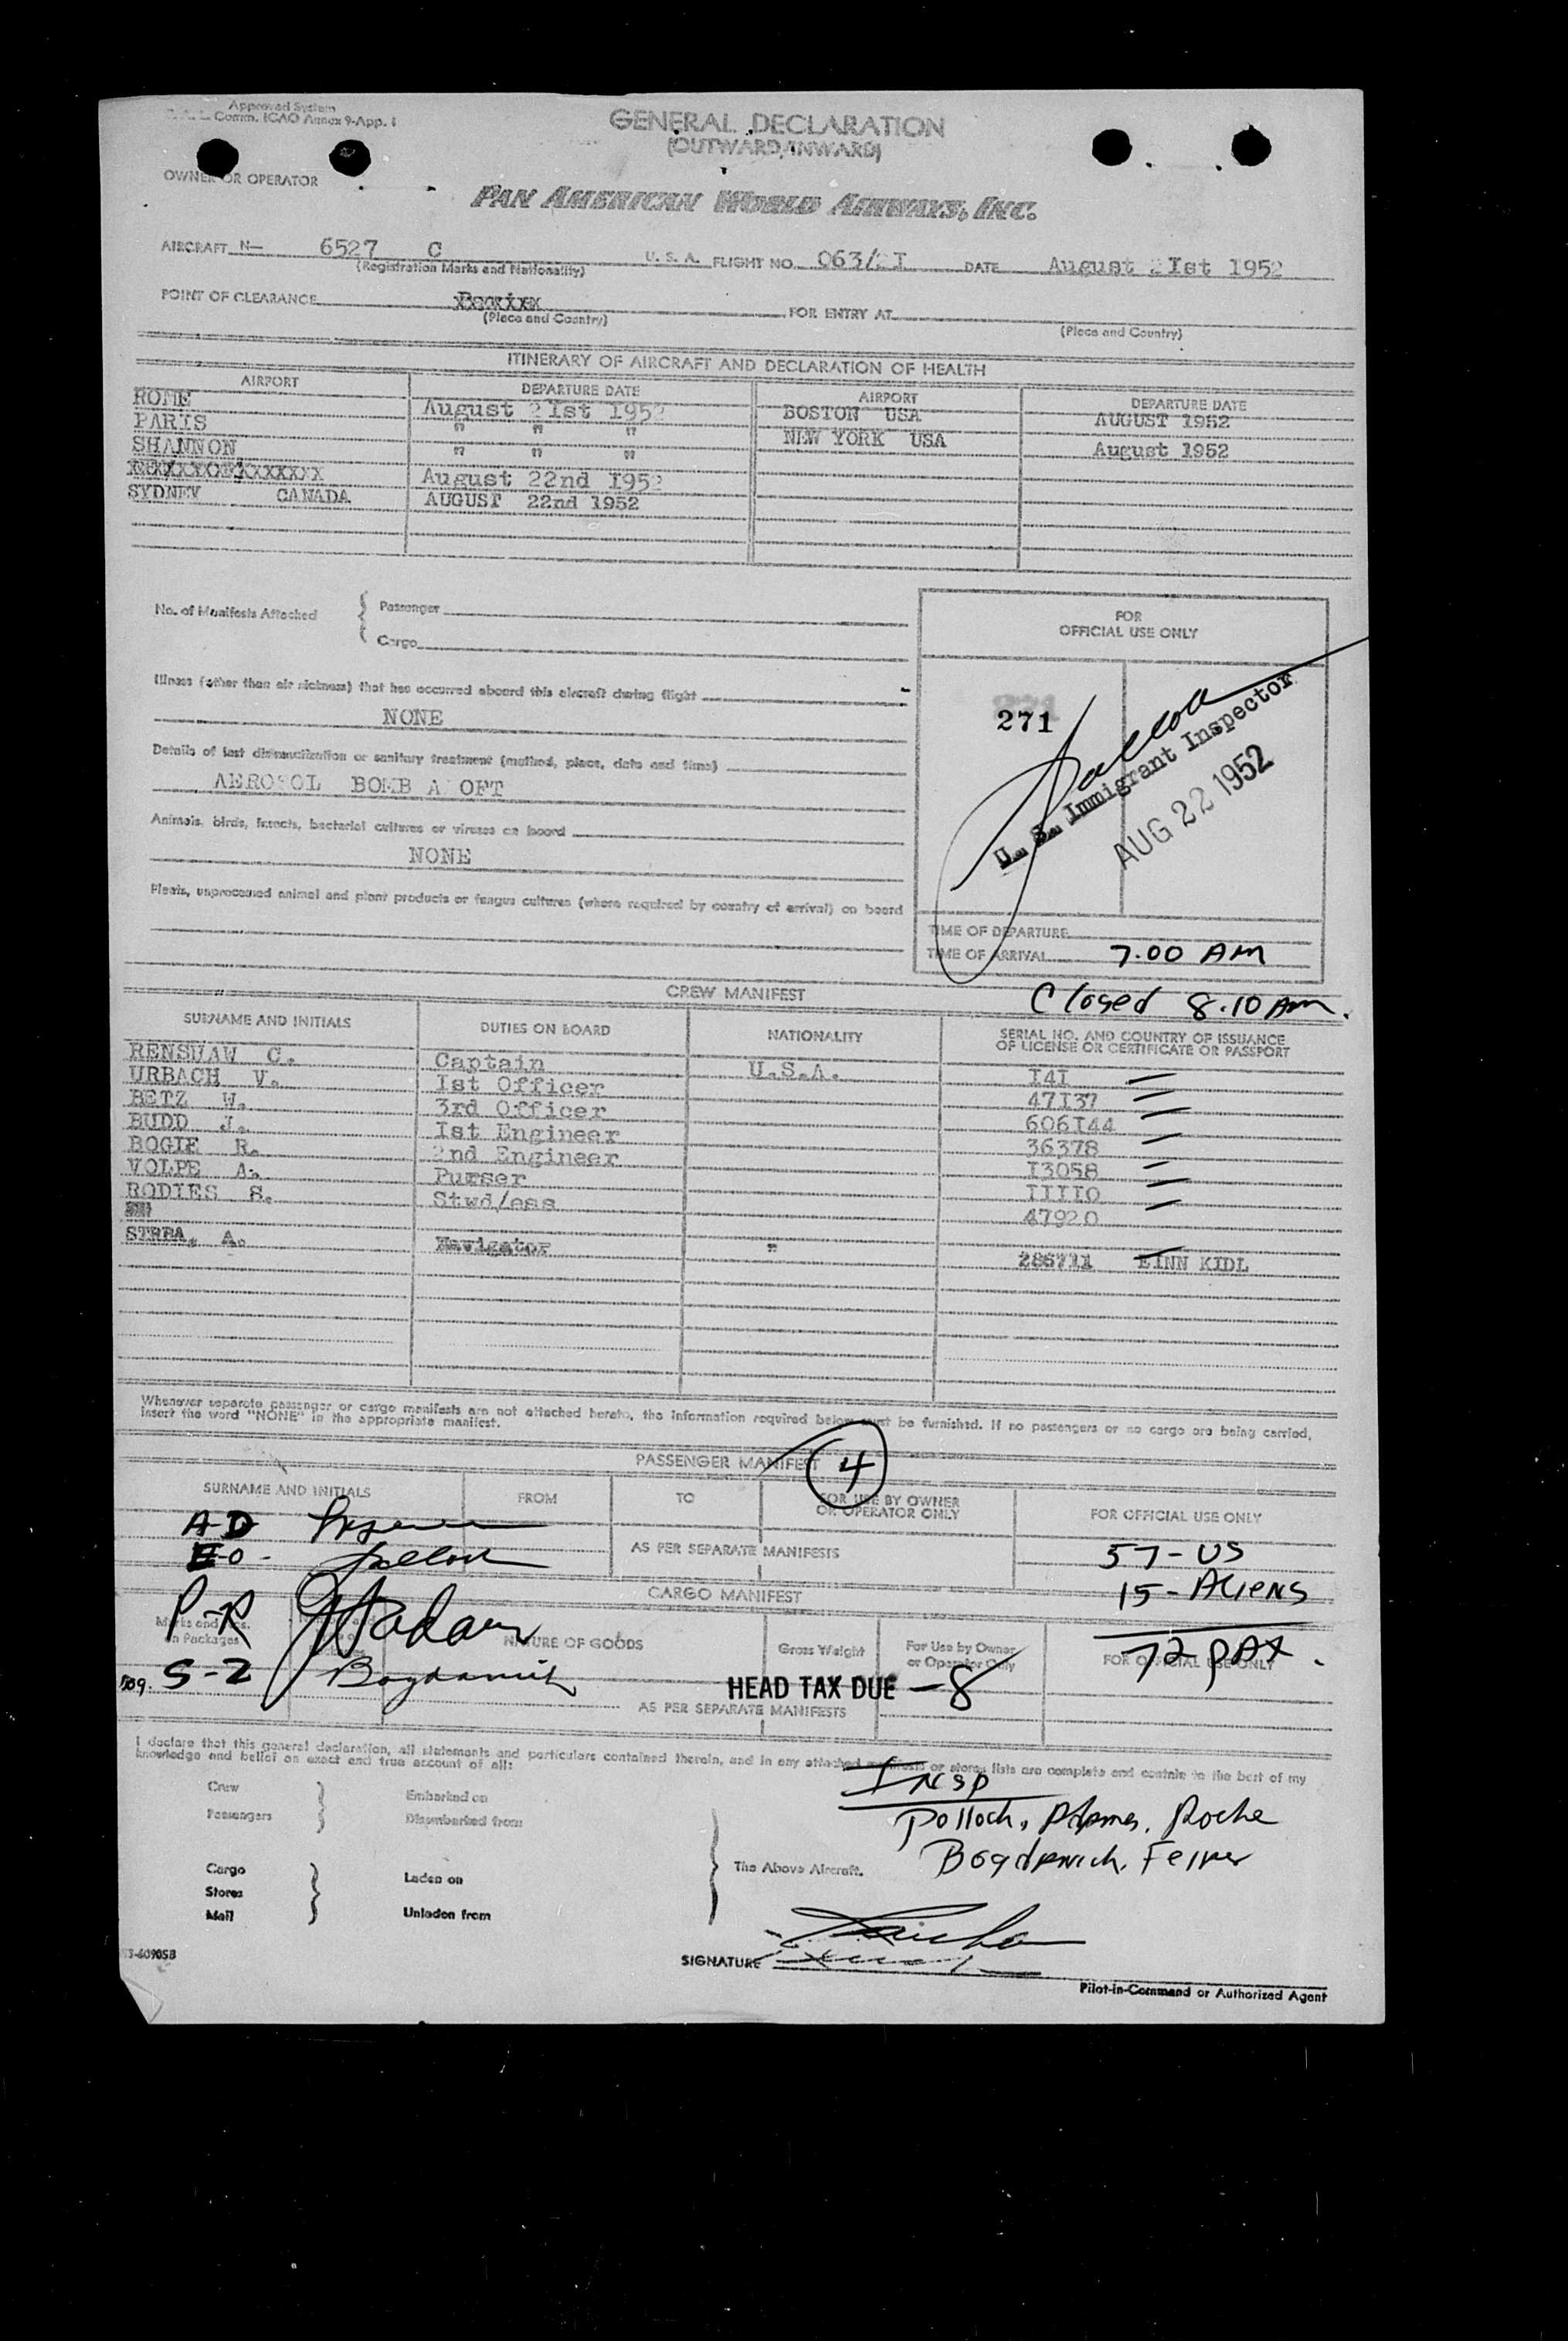 Approved System
Comm. ICAO Annex 9-App. 1
GENERAL DECLARATION
(OUTWARD/INWARD)
OWNER OR OPERATOR
PAN AMERICAN WORLD AIRWAYS, INC.
AIRCRAFT N— 6527 C U. S. A. FLIGHT NO. 063/2I DATE August 2Ist 1952
(Registration Marks and Nationality)
POINT OF CLEARANCE FOR ENTRY AT
(Place and Country) (Place and Country)
ITINERARY OF AIRCRAFT AND DECLARATION OF HEALTH
AIRPORT DEPARTURE DATE AIRPORT DEPARTURE DATE
ROME August 2Ist 1952 BOSTON USA AUGUST 1952
PARIS " " " NEW YORK USA August 1952
SHANNON " " "
August 22nd 1952
SYDNEY CANADA AUGUST 22nd 1952
No. of Manifests Attached
Passenger
Cargo
FOR
OFFICIAL USE ONLY
Illness (other than air sickness) that has occurred aboard this aircraft during flight -
NONE
271
U. S. Immigrant Inspector
AUG 22 1952
Details of last disinsectization or sanitary treatment (method, place, date and time)
AEROSOL BOMB A OFT
Animals, birds, insects, bacterial cultures or viruses on board
NONE
Plants, unprocessed animal and plant products or fungus cultures (where required by country of arrival) on board
TIME OF DEPARTURE
TIME OF ARRIVAL 7.00 AM
Closed 8.10 Am.
CREW MANIFEST
SURNAME AND INITIALS DUTIES ON BOARD NATIONALITY SERIAL NO. AND COUNTRY OF ISSUANCE
OF LICENSE OR CERTIFICATE OR PASSPORT
RENSHAW C. Captain U.S.A. I4I
URBACH V. Ist Officer 47I37
BETZ W. 3rd Officer 606I44
BUDD J. Ist Engineer 36378
BOGIE R. 2nd Engineer I3058
VOLPE A. Purser IIIIO
RODIES S. Stwd/ess 47920
STRBA, A. Navigator " 286711 EINN KIDL
Whenever separate passenger or cargo manifests are not attached hereto, the information required below must be furnished. If no passengers or no cargo are being carried,
insert the word "NONE" in the appropriate manifest.
PASSENGER MANIFEST 4
SURNAME AND INITIALS FROM TO FOR USE BY OWNER
OR OPERATOR ONLY FOR OFFICIAL USE ONLY
A-D
E-O -
AS PER SEPARATE MANIFESTS
57-US
15-Aliens
CARGO MANIFEST
P-R
Marks and Nos.
on Packages NATURE OF GOODS Gross Weight For Use by Owner
or Operator Only FOR OFFICIAL USE ONLY
72 pax.
S-Z Bogdanich
HEAD TAX DUE -8
AS PER SEPARATE MANIFESTS
I declare that this general declaration, all statements and particulars contained therein, and in any attached manifests or stores lists are complete and contain to the best of my
knowledge and belief an exact and true account of all:
Crew
Passengers
Embarked on
Disembarked from
Insp
Pollock, Adams, Roche
Bogdanich,
Cargo
Stores
Mail
Laden on
Unladen from
The Above Aircraft.
SIGNATURE
Pilot-in-Command or Authorized Agent